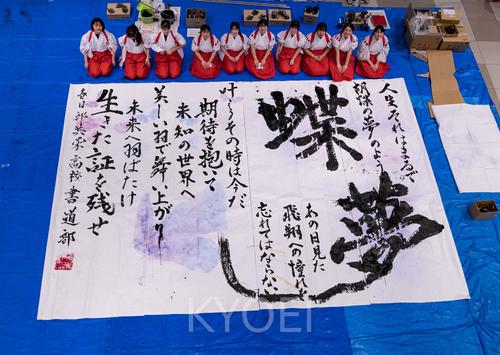 人生それはまるで
胡蝶の夢のよう
蝶夢
あの日見た
飛翔への憧れを
忘れてはならない
叶うその時は今だ
期待を抱いて
未知の世界へ
美しい羽で舞い上がり
未来へ羽ばたけ
生きた証を残せ
春日部共栄高校書道部
KYOEI